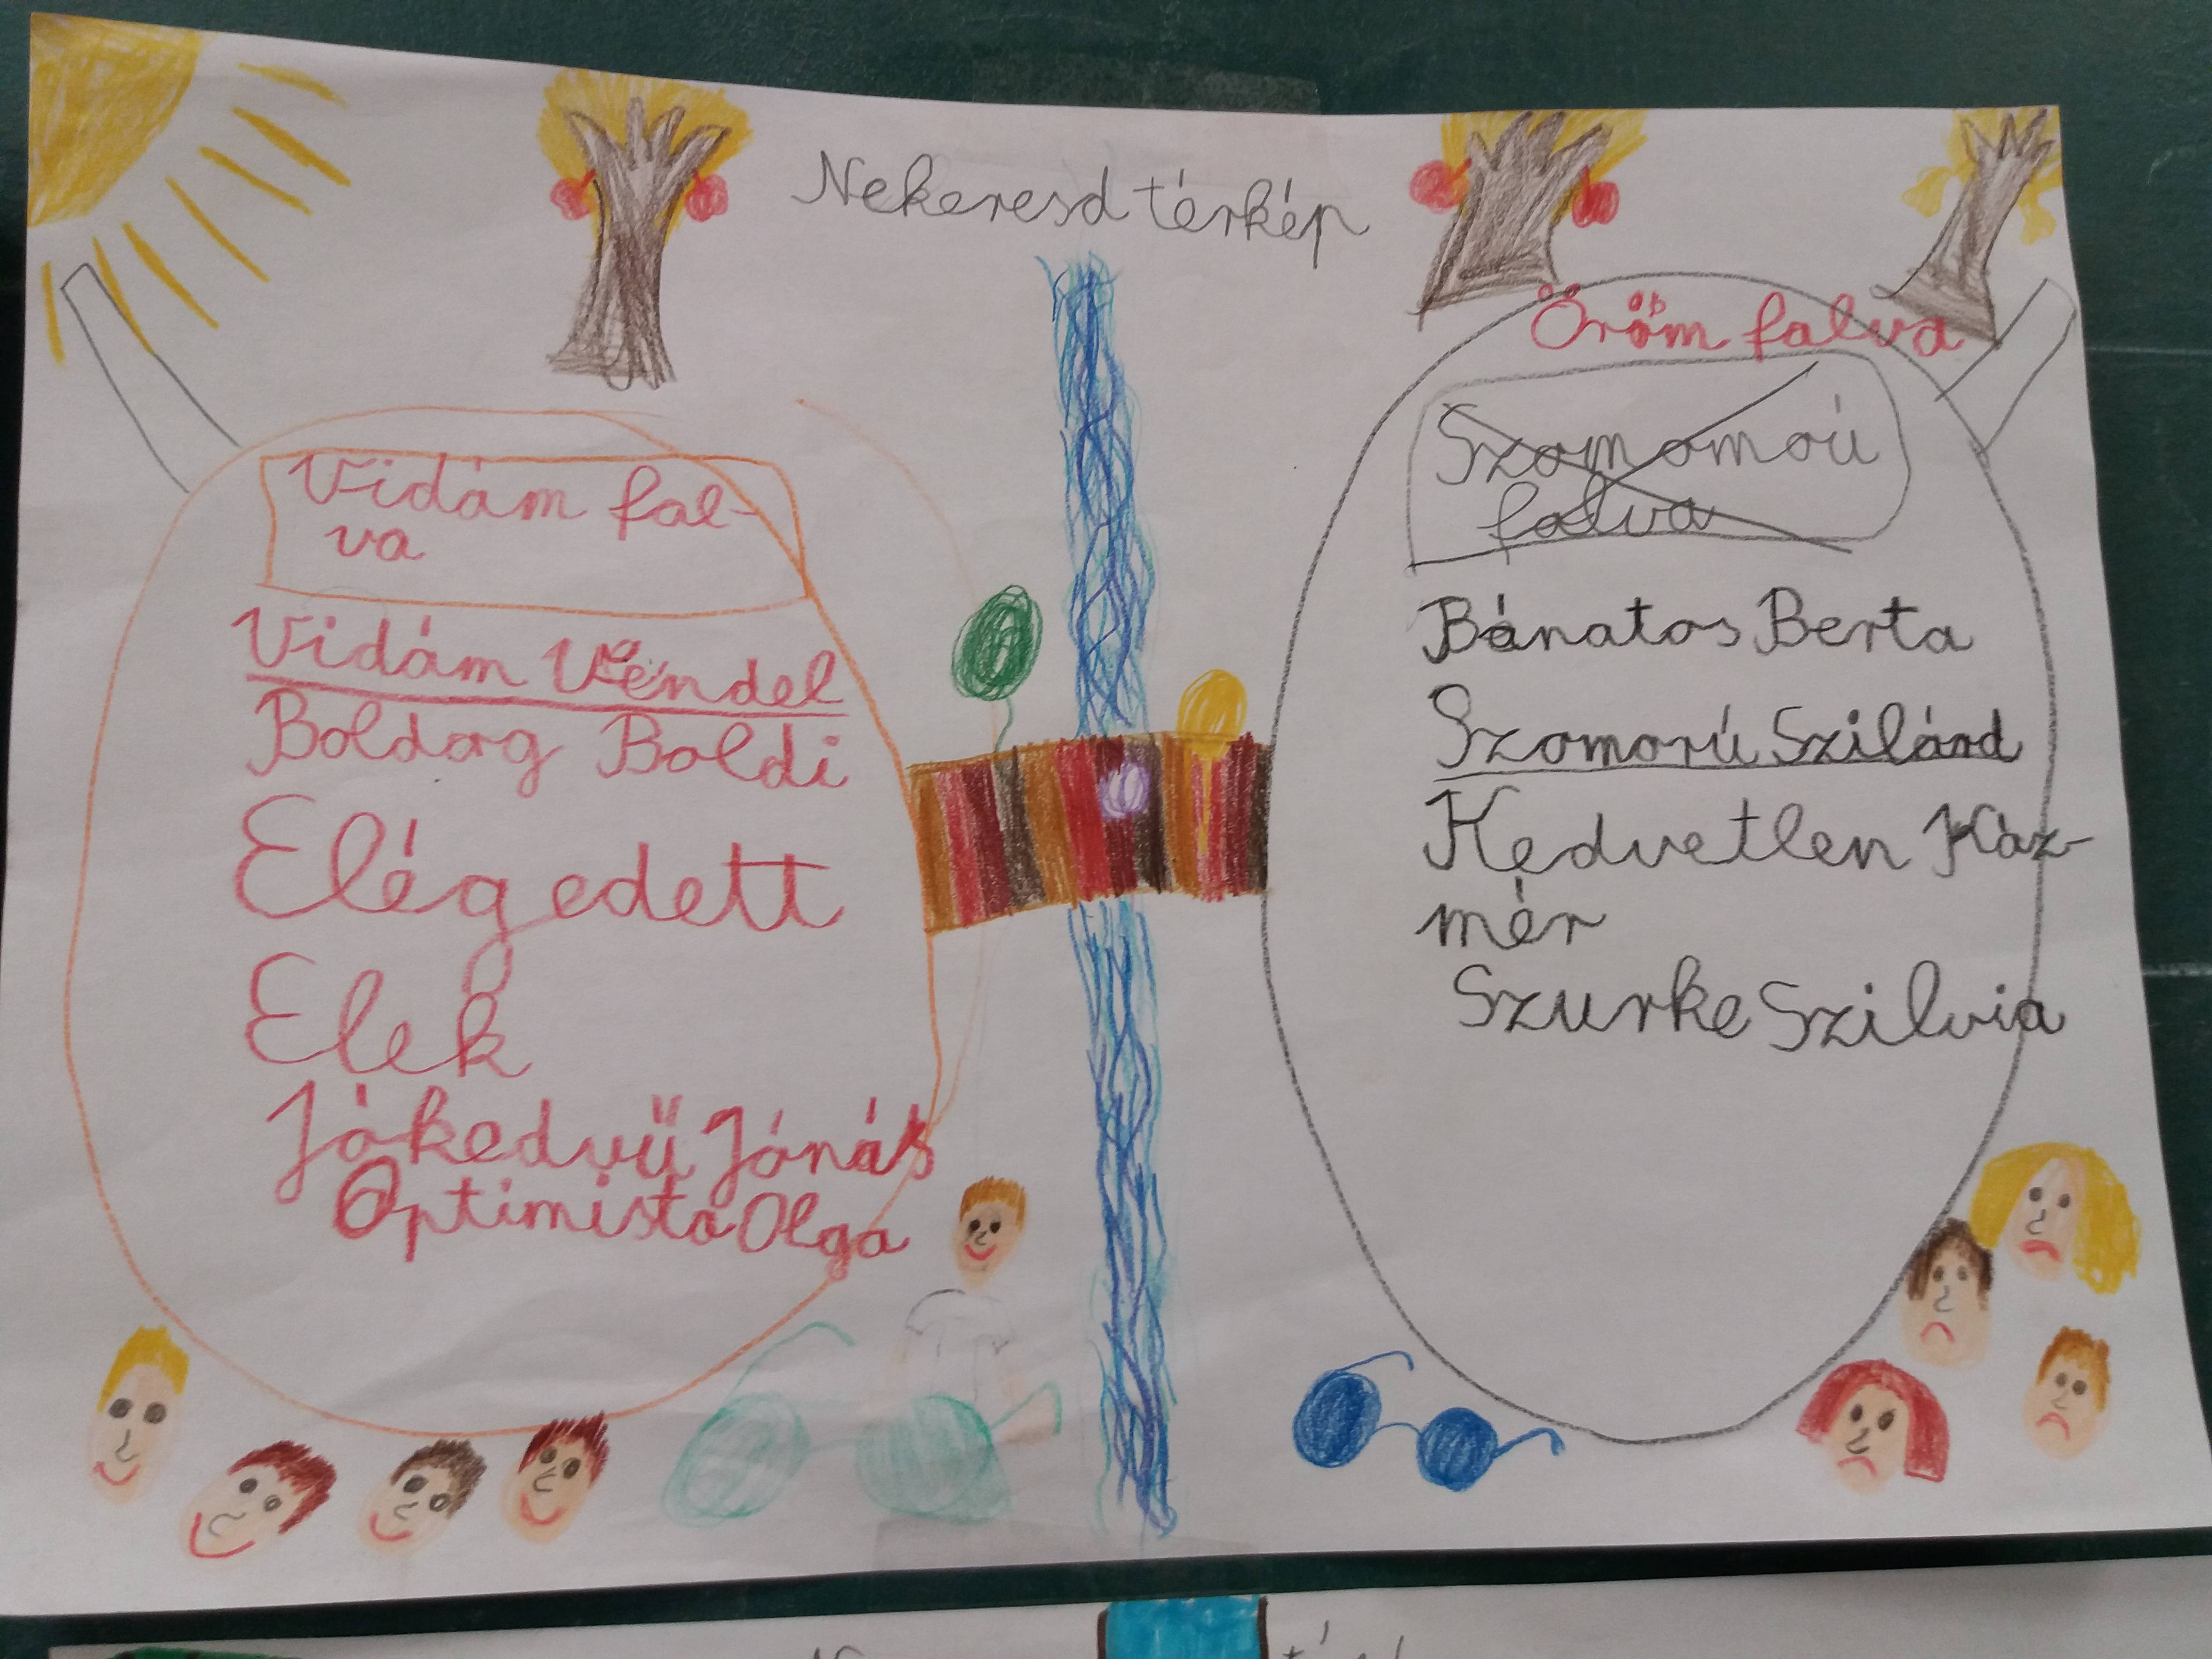 Nekeresd térkép
Vidám fal-
va
Vidám Vendel
Boldog Boldi
Elégedett
Elek
Jókedvű Jónás
Optimista Olga
Öröm falva
Szomomoú
falva
Bánatos Berta
Szomorú Szilárd
Kedvetlen Káz-
mér
Szurke Szilvia